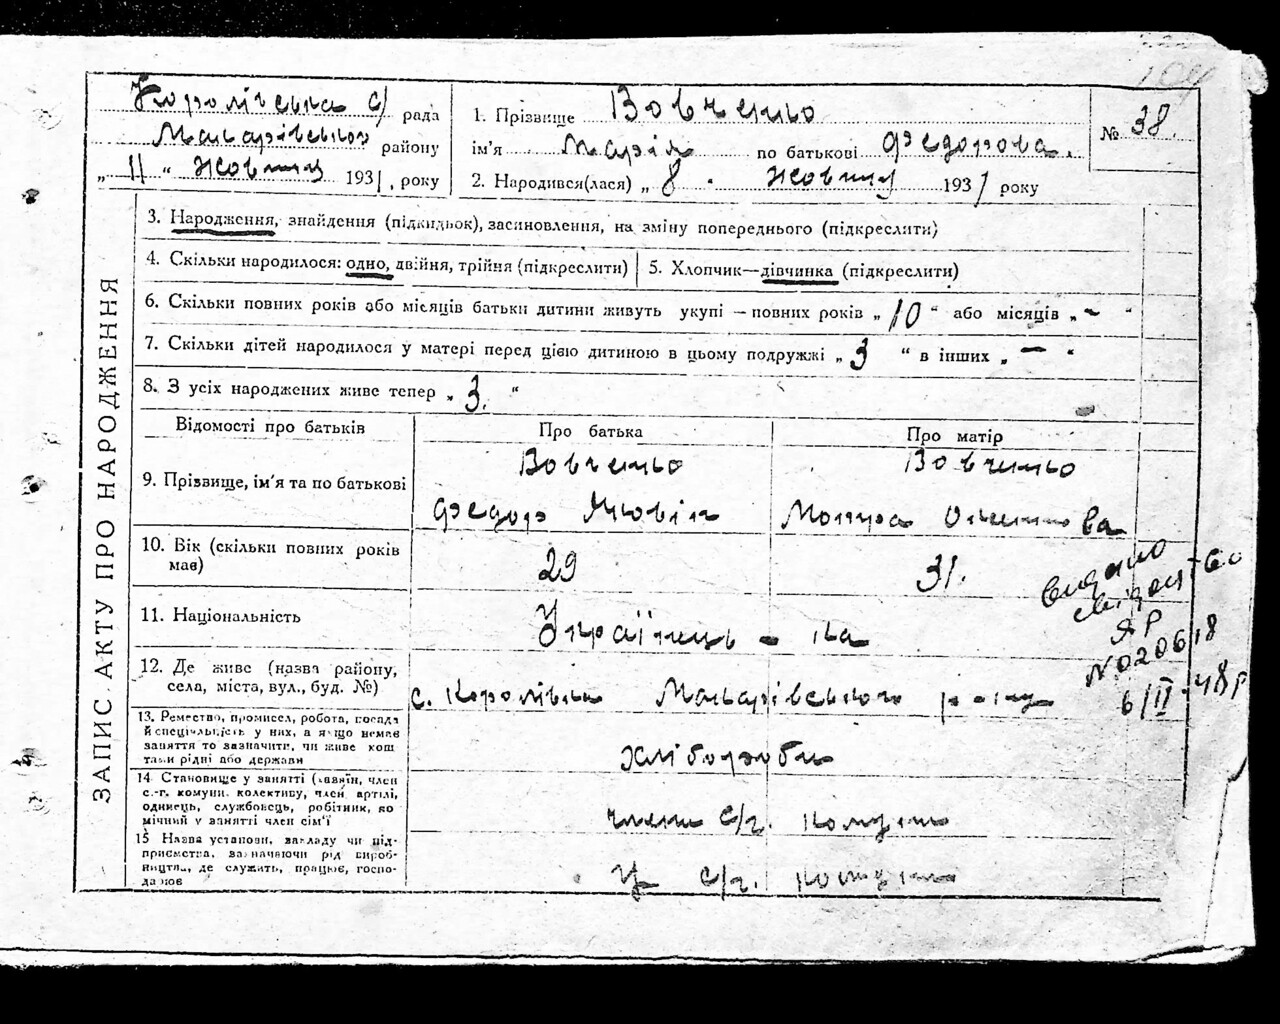 104
Королівська с/ рада
Макарівського району
„ 11 “ жовтня 1931, року
1. Прізвище Вовченко
ім'я Марія по батькові Федорова.
2. Народився(лася) „ 8 “ жовтня 1931 року
№ 38.
ЗАПИС АКТУ ПРО НАРОДЖЕННЯ
3. Народження, знайдення (підкидьок), засиновлення, на зміну попереднього (підкреслити)
4. Скільки народилося: одно, двійня, трійня (підкреслити)
5. Хлопчик—дівчинка (підкреслити)
6. Скільки повних років або місяців батьки дитини живуть укупі — повних років „ 10 “ або місяців „ - “
7. Скільки дітей народилося у матері перед цією дитиною в цьому подружжі „ 3 “ в інших „ — “
8. З усіх народжених живе тепер „ 3. “
Відомості про батьків
Про батька
Про матір
9. Прізвище, ім'я та по батькові
Вовченко
Вовченко
Федор
Мотра
10. Вік (скільки повних років має)
29
31.
11. Національність
Українець - ка
12. Де живе (назва району,
села, міста, вул., буд. №)
с. Королівка Макарівського р-ну
13. Ремество, промисел, робота, посада
й спеціяльність у них, а якщо немає
заняття то зазначити, чи живе кош
тами рідні або держави
хлібороби
14 Становище у занятті (хазяїн, член
с.-г. комуни, колективу, член артілі,
одинець, службовець, робітник, по
мічний у занятті член сім'ї
члени с/г. комуни
15 Назва установи, закладу чи під-
приємства, зазначаючи рід вироб-
ництва, де служить, працює, госпо-
дарює
с/г. комуни
Видано
свідоцт-во
ЯР
№020618
6/II-48р